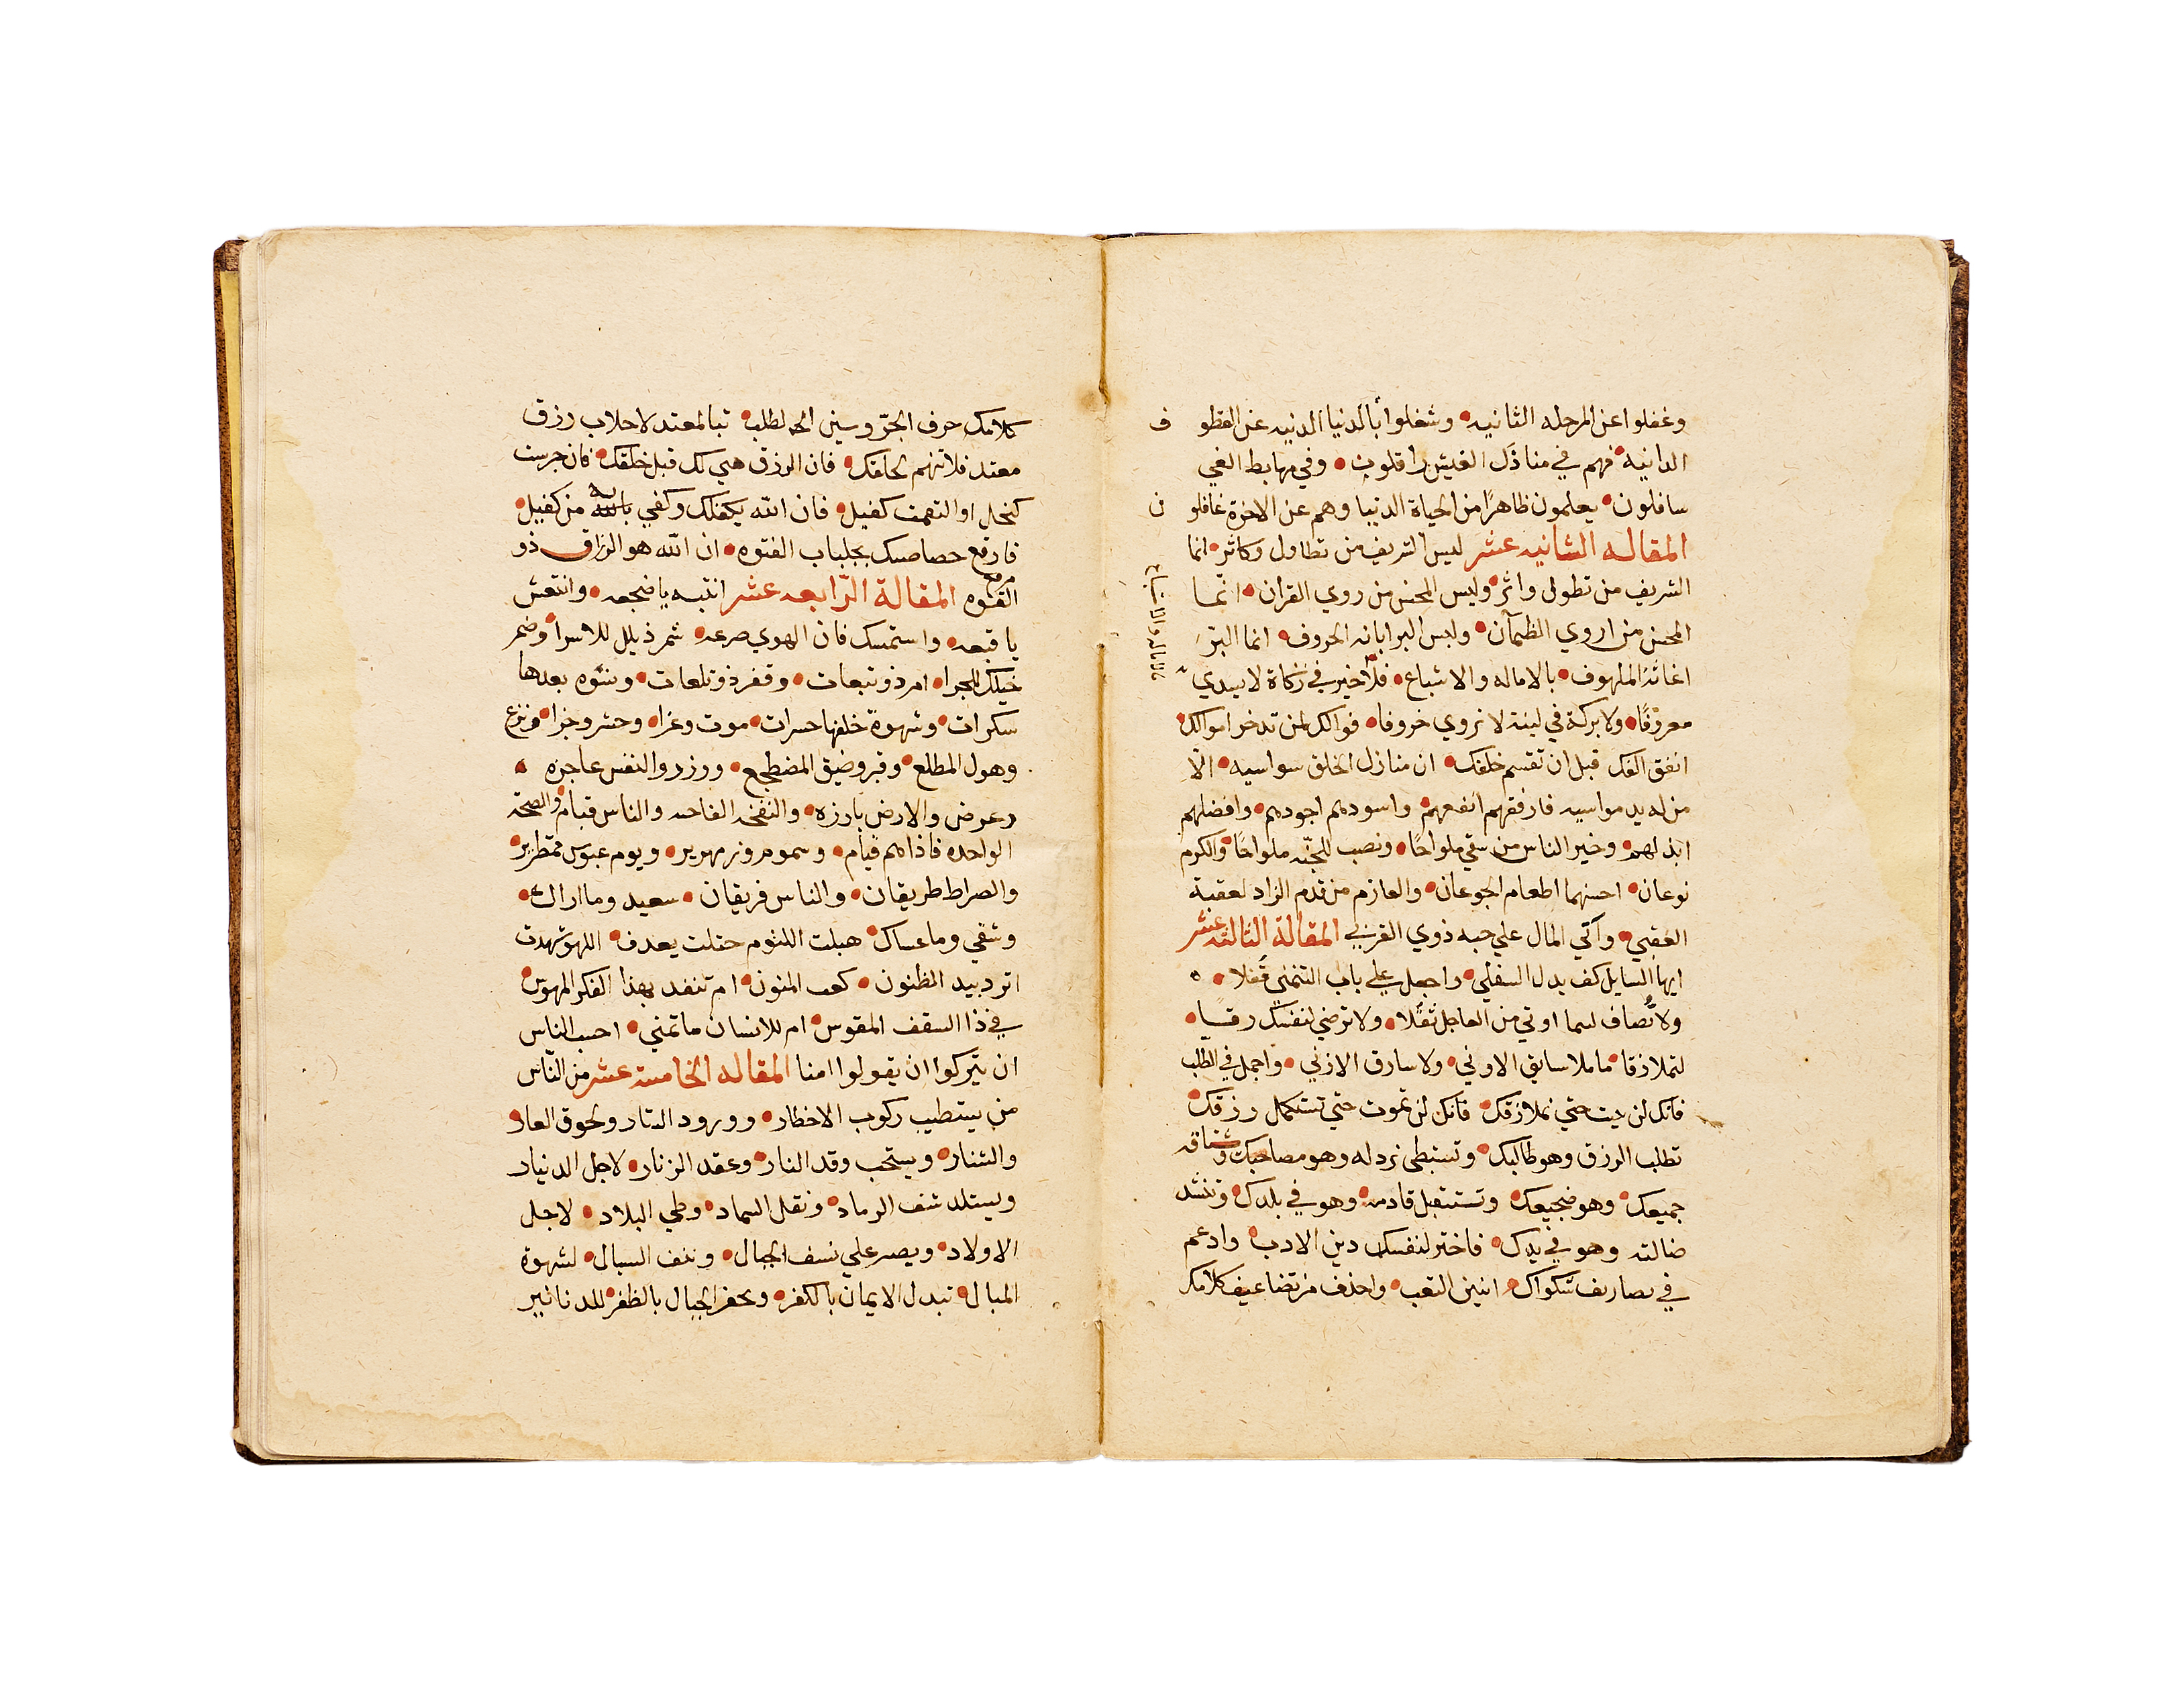 وغفلوا عن المرحله الثانيه • وشغلوا بالدنيا الدنيه عن القطو ف
الدانية • فهم في منازل العيش راقلون • وفي مهابط الغي
سافلون • يعلمون ظاهرًا من الحياة الدنيا وهم عن الاخرة غافلو ن
المقاله الثانيه عشر ليس الشريف من تطاول وكاثر • انما
الشريف من تطول واثر • وليس المحسن من روي القران • انّما
المحسن من اروي الظمآن • وليس البر ابانه الحروف • انما البرّ
اغاثة الملهوف • بالاماله والاشباع • فلا خير في زكاة لا يسدي
معروفًا • ولا بركة في لبنة لا تروي خروفا • فوالك لمن تدخر اموالك •
انفق الفك قبل ان تقسم خلفك • ان منازل الخلق سواسيه • الّا
من له يد مواسيه فارفقهم انفعهم • واسودهم اجودهم • وافضلهم
ابذلهم • وخير الناس من سقي ملواحًا • ونصب للجنّه ملواحًا • والكرم
نوعان • احسنهما اطعام الجوعان • والعازم من قدم الزاد لعقبة
العقبي • وآتي المال علي حبه ذوي القربي المقالة الثالثه عشر
ايها السايل كف يدك السفلي • واجعل علي باب التمني قُفلا •
ولا تُصاف لما اوتي من العاجل ثقَلا • ولا ترضي لنفسك رقا •
لتملا زقا • ما ملا سابق الاوني • ولا سارق الازني • واجمل في الطلب
فانك لن يت حتي تملا زقك • فانك لن تموت حتي تستكمل رزقك •
تطلب الرزق وهو طالبك • وتستبطي نزدله وهو مصاحبك و
جميعك • وهو ضجيعك • وتستقبل قادمه • وهو في بلدك • وتنشد
ضالته وهو في يدك • فاختر لنفسك دين الادب • وادعم
في تصاريف شكواك • انين التعب • واحذف من تضاعيف كلامك
كلامك حرف الجرّ وسين الطلب • تبا لمعتد لاجلاب رزق
معتد فلا تهم لخلقك • فان الرزق هيي لك قبل خلقك • فان حرست
كنخل او التقمت كفيل • فان الله يكفلك وكفي بالله به من كفيل •
فارقع خصاصتك بجلباب الفتوه • ان الله هو الرزاق ذو
القوه المقالة الرّابعه عشر انتبه يا ضجعه • وانتعش
يا قبعه • واستمسك فان الهوي صرعه • شمر ذيلل للاسرا • وضمر
خيلك للمجرا • امر ذو تبعات • وقفر ذو تلعات • ونشوه بعدها
سكرات • وشهوة خلفها حسرات • موت وعزا • وحشر وجزا • وفزع
وهول المطلع • وقبر وضيق المضطجع • ووزر والنفس عاجزه •
وعرض والارض بارزه • والنفخه الفاحه والناس قيام • والصيحة
الواحده فاذا هم قيام • وسموم وزمهرير • ويوم عبوس قمطرير •
والصراط طريقان • والناس فريقان • سعيد وما اراك •
وشقي وما عساك • هبلت اللنوم حتلت يعدف • اللهو شهدت
اترد بيد الظنون • كعب المنون • ام تنفد بهذا الفكر المهوّس •
في ذا السقف المقوس • ام للانسان ما تمني • احسب الناس
ان يتركوا ان يقولوا امنا المقاله الخامسة عشر من النّاس
من يستطيب ركوب الاخطار • وورود التار ولحوق العار
والشنار • ويستحب وقد النار • وعقد الزنار • لاجل الدنيار
ويستلد شف الرماد • ونقل السماد • وطي البلاد • لاجل
الاولاد • ويصر علي نسف الجبال • ونتف السبال • لشهوة
المبال • تبدل الايمان بالكفر • وبحفر الجبال بالظفر • للدنانير